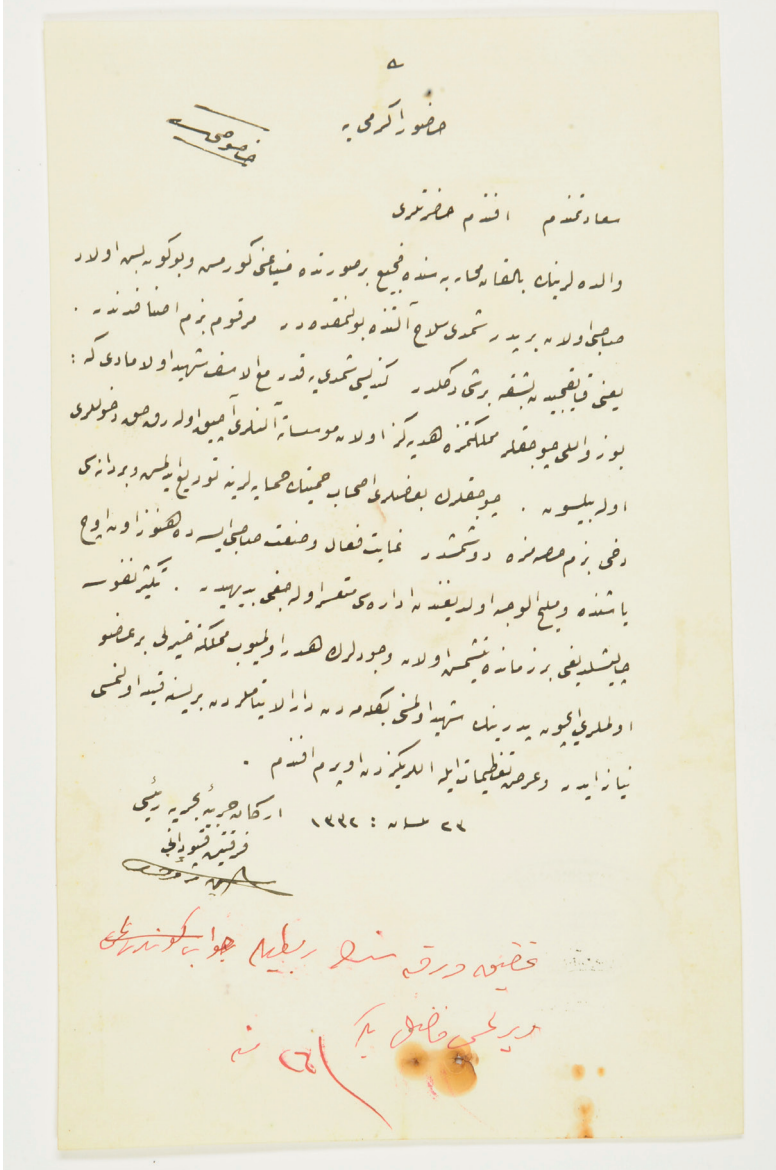 حضور اكرمى يه
خصوصى
سعادتمندم افندم حضرتلرى
والده لرينك بالقان محاربه سنده فجيع بر صورتده ضياعنى كورمس وبوكون بش اولاد
صاحبى اولان بر پدر شمدى سلاح آلتنده بولنمقده در مرقوم بزم اصنافدندر .
يعنى قايقجيدن بشقه بر شى دكلدر كنديسى شمدى يه قدر مع الاسف شهيد اولامادى كه :
بو زواللى چوجقلر مملكتمزه هديه كز اولان مؤسسات آلتلرى آچيق اوله رق حق دخوللرى
اوله بيلسون . چوجقلرك بعضلرى اصحاب حميتك حمايه لرينه توزيع ايدلمش وبر دانه سى
دخى بزم حصه مزه دوشمشدر غايت فعال وصنعت صاحبى ايسه ده هنوز اون اوچ
ياشنده ومليح الوجه اولديغندن اداره سى متعسر اوله جغى بديهيدر . تكثير نفوسه
چاليشلديغى بر زمانده يتيشمش اولان وجودلرك هدر اولميوب مملكته خيرلى بر عضو
اولملرى ايچون پدرينك شهيد اولمسنى بكله مه دن دار الايتاملردن بريسنه قيد اولنمسى
نياز ايدر وعرض تعظيمات ايله اللريكزدن اوپرم افندم .
٢٣ نيسان : ١٣٣٢ اركان حربيه بحريه رئيسى
فرقتين قپودانى
تحقيق ورقه سنه ربطيله جواب
مدير فاضل بك
٢٦ منه